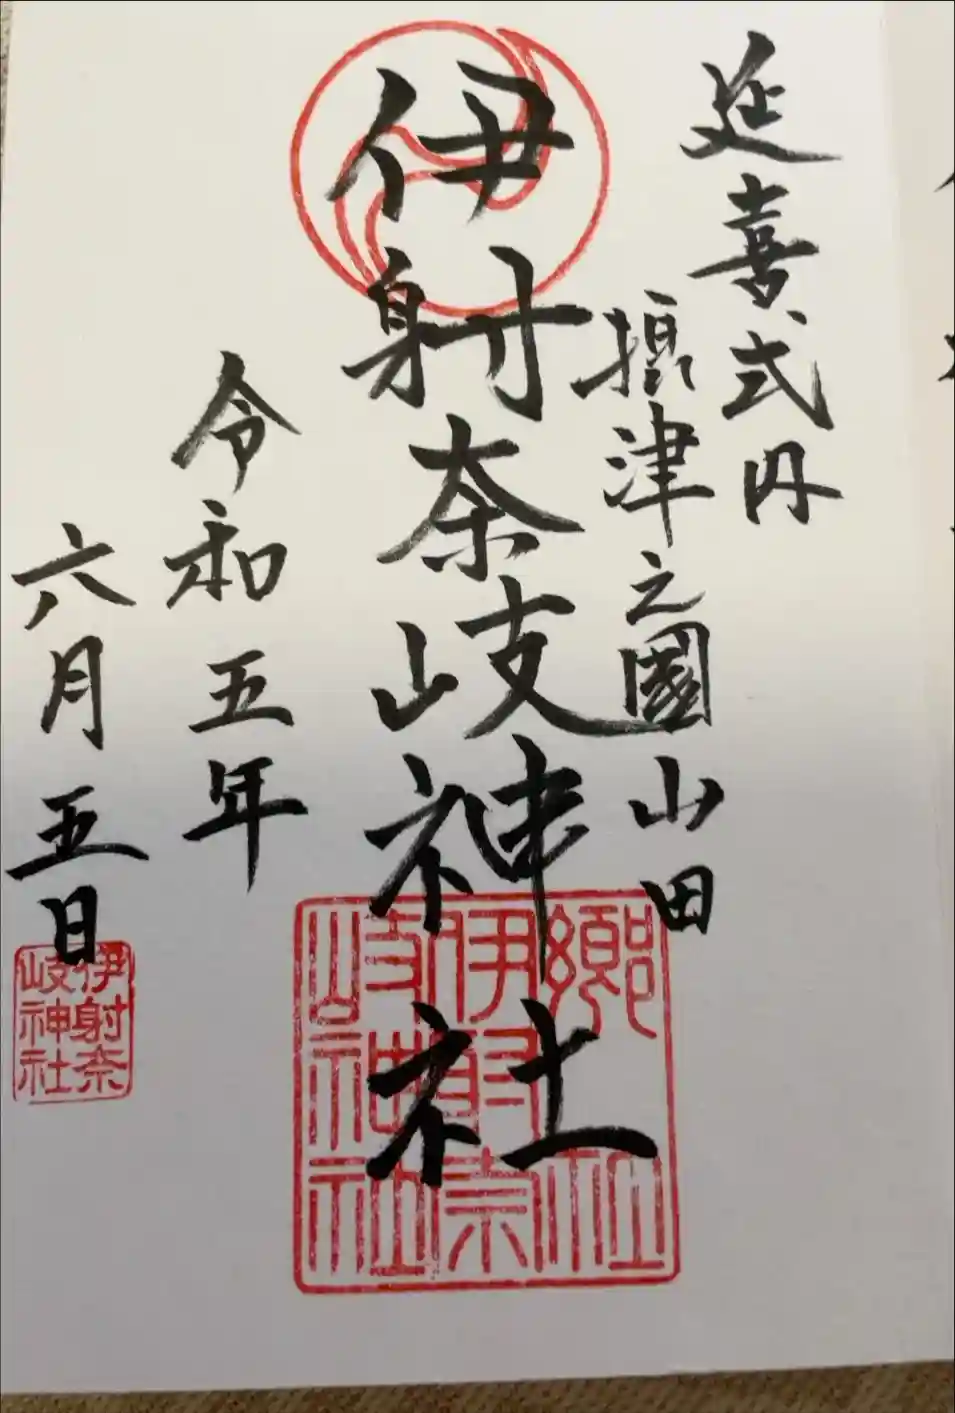 延喜式内
摂津之國山田
伊射奈岐神社
令和五年
六月五日
郷社
伊射奈
岐神社
伊射奈
岐神社